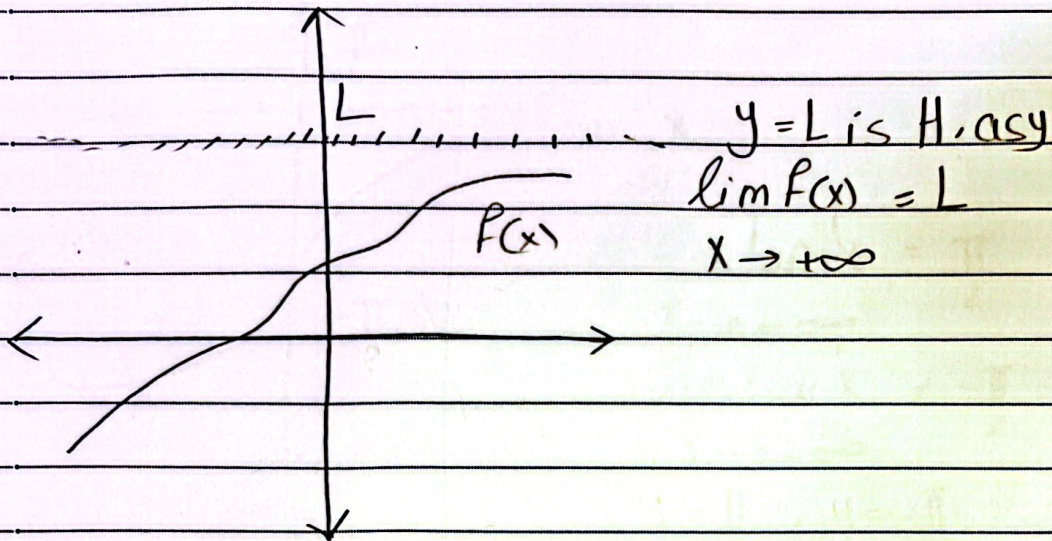 L
y = L is H. asy
lim f(x) = L
x → +∞
f(x)